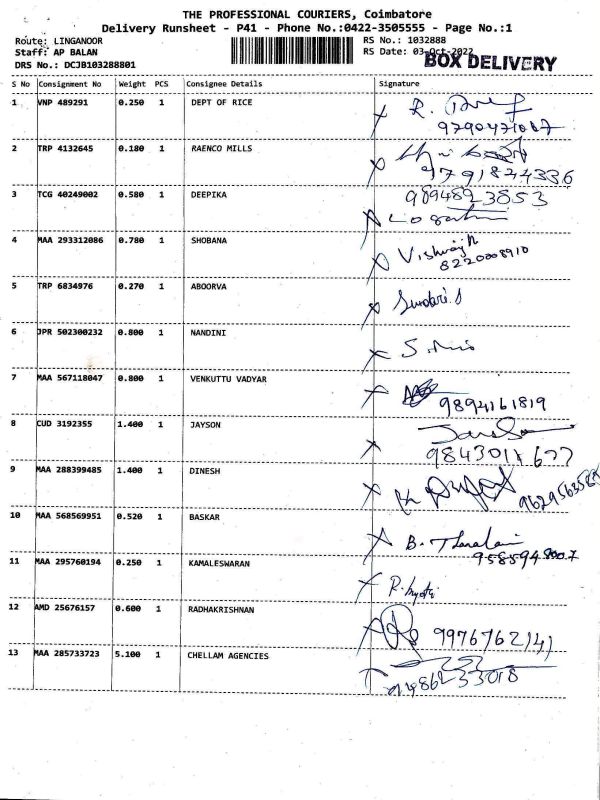 THE PROFESSIONAL COURIERS, Coimbatore
Delivery Runsheet - P41 - Phone No.:0422-3505555 - Page No.:1
Route: LINGANOOR RS No.: 1032888
Staff: AP BALAN RS Date: 03-Oct-2022
DRS No.: DCJB103288801 BOX DELIVERY
S No Consignment No Weight PCS Consignee Details Signature
1 VNP 489291 0.250 1 DEPT OF RICE R.
2 TRP 4132645 0.180 1 RAENCO MILLS
9791844336
3 TCG 40249002 0.580 1 DEEPIKA 9894823853
4 MAA 293312086 0.780 1 SHOBANA
8220008910
5 TRP 6834976 0.270 1 ABOORVA Sundari.S
6 JPR 502300232 0.800 1 NANDINI
7 MAA 567118047 0.800 1 VENKUTTU VADYAR
9894161819
8 CUD 3192355 1.400 1 JAYSON
9 MAA 288399485 1.400 1 DINESH
10 MAA 568569951 0.520 1 BASKAR B.
11 MAA 295760194 0.250 1 KAMALESWARAN
12 AMD 25676157 0.600 1 RADHAKRISHNAN 9976762141
13 MAA 285733723 5.100 1 CHELLAM AGENCIES
9486233018